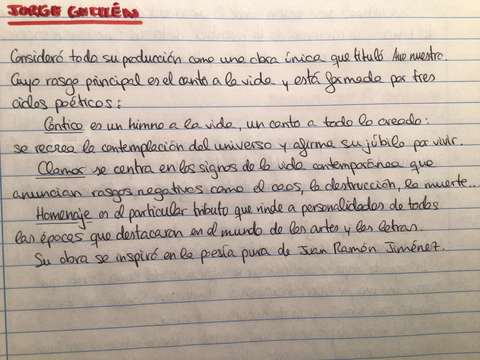 JORGE GUILLÉN
Consideró toda su producción como una obra única que tituló Aire nuestro.
Cuyo rasgo principal es el canto a la vida y está formada por tres
ciclos poéticos:
Cántico es un himno a la vida, un canto a todo lo creado:
se recrea la contemplación del universo y afirma su júbilo por vivir.
Clamor se centra en los signos de la vida contemporánea que
anuncian rasgos negativos como el caos, la destrucción, la muerte..
Homenaje es el particular tributo que rinde a personalidades de todas
las épocas que destacaron en el mundo de las artes y las letras.
Su obra se inspiró en la poesía pura de Juan Ramón Jiménez.